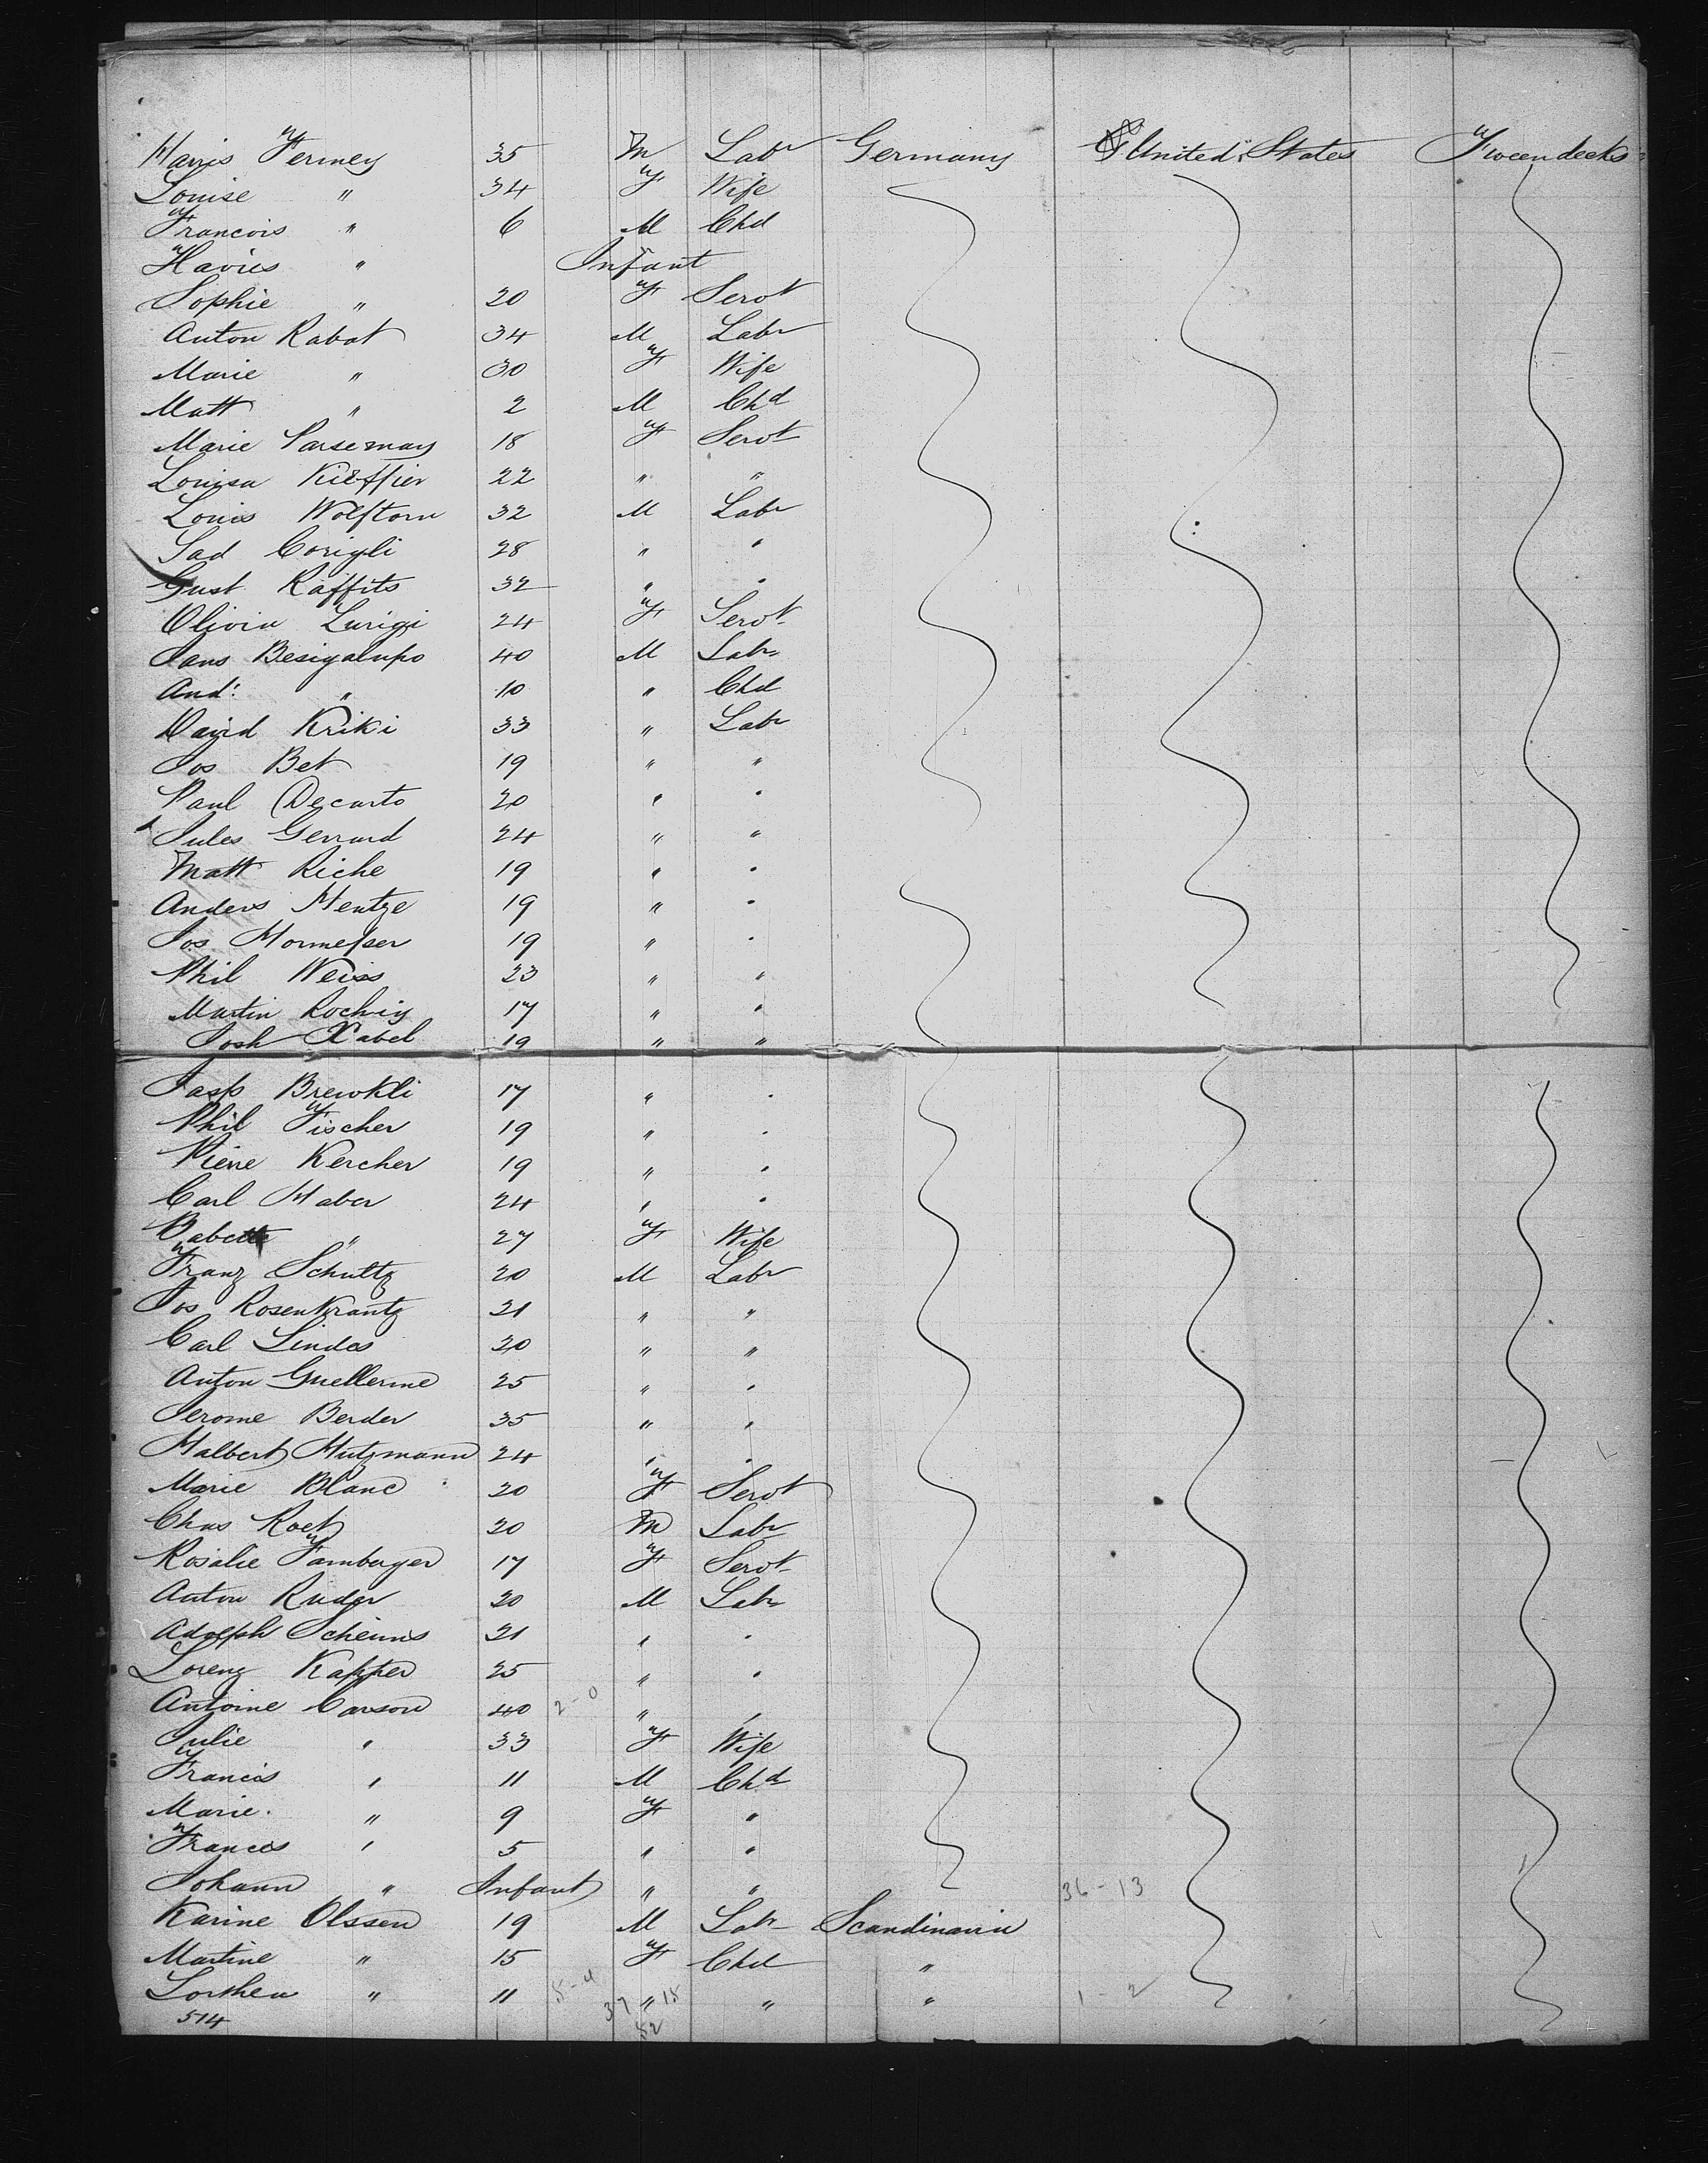 Harris Fermey 35 M Labr Germany United States Tweendecks
Louise " 34 F Wife
Francois " 6 M Chd
Havies " Infant
Sophie " 20 F Servt
Anton Rabat 34 M Labr
Marie " 30 F Wife
Matt " 2 M Chd
Marie Parsemay 18 F Servt
Louisa Kieffier 22 " "
Louis Wolftorn 32 M Labr
Sad Corigli 28 " "
Gust Raffits 32 " "
Olivia Lurigi 24 F Servt
Jans Besigalupo 40 M Labr
And: " 10 " Chd
David Kriki 33 " Labr
Jos Bet 19 " "
Paul Decarto 20 " "
Jules Gerrard 24 " "
Matt Riche 19 " "
Anders Hentze 19 " "
Jos Hormesser 19 " "
Phil Weiss 23 " "
Martin Rochvig 17 " "
Josh Xabel 19 " "
Jask Brewkli 17 " "
Phil Fischer 19 " "
Pierre Kercher 19 " "
Carl Haber 24 " "
Babette " 27 F Wife
Franz Schultz 20 M Labr
Jos Rosenkrantz 21 " "
Carl Lindes 20 " "
Anton Guellerme 25 " "
Jerome Berder 35 " "
Halbert Hutzmann 24 " "
Marie Blanc 20 F Servt
Chas Roet 20 M Labr
Rosalie Famberger 17 F Servt
Anton Rudgr 20 M Labr
Adolph Scheinns 21 " "
Lorenz Kapper 25 " "
Antoine Carson 40 2-0 " "
Julie " 33 F Wife
Francis " 11 M Chd
Marie " 9 F "
Frances " 5 " "
Johann " Infant " " 36-13
Karine Olssen 19 M Labr Scandinavia
Martine " 15 F Chd "
Lorthea " 11 5-4 37 " 15 " " 1-2
514 52